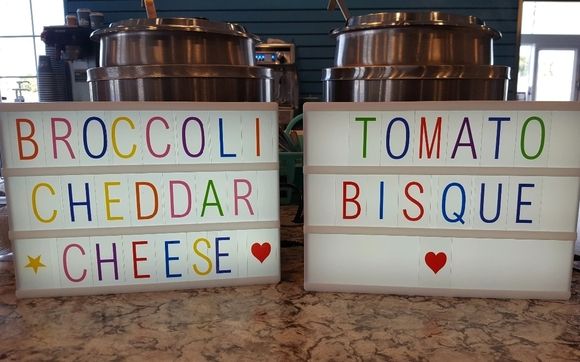 BROCCOLI
CHEDDAR
CHEESE
TOMATO
BISQUE